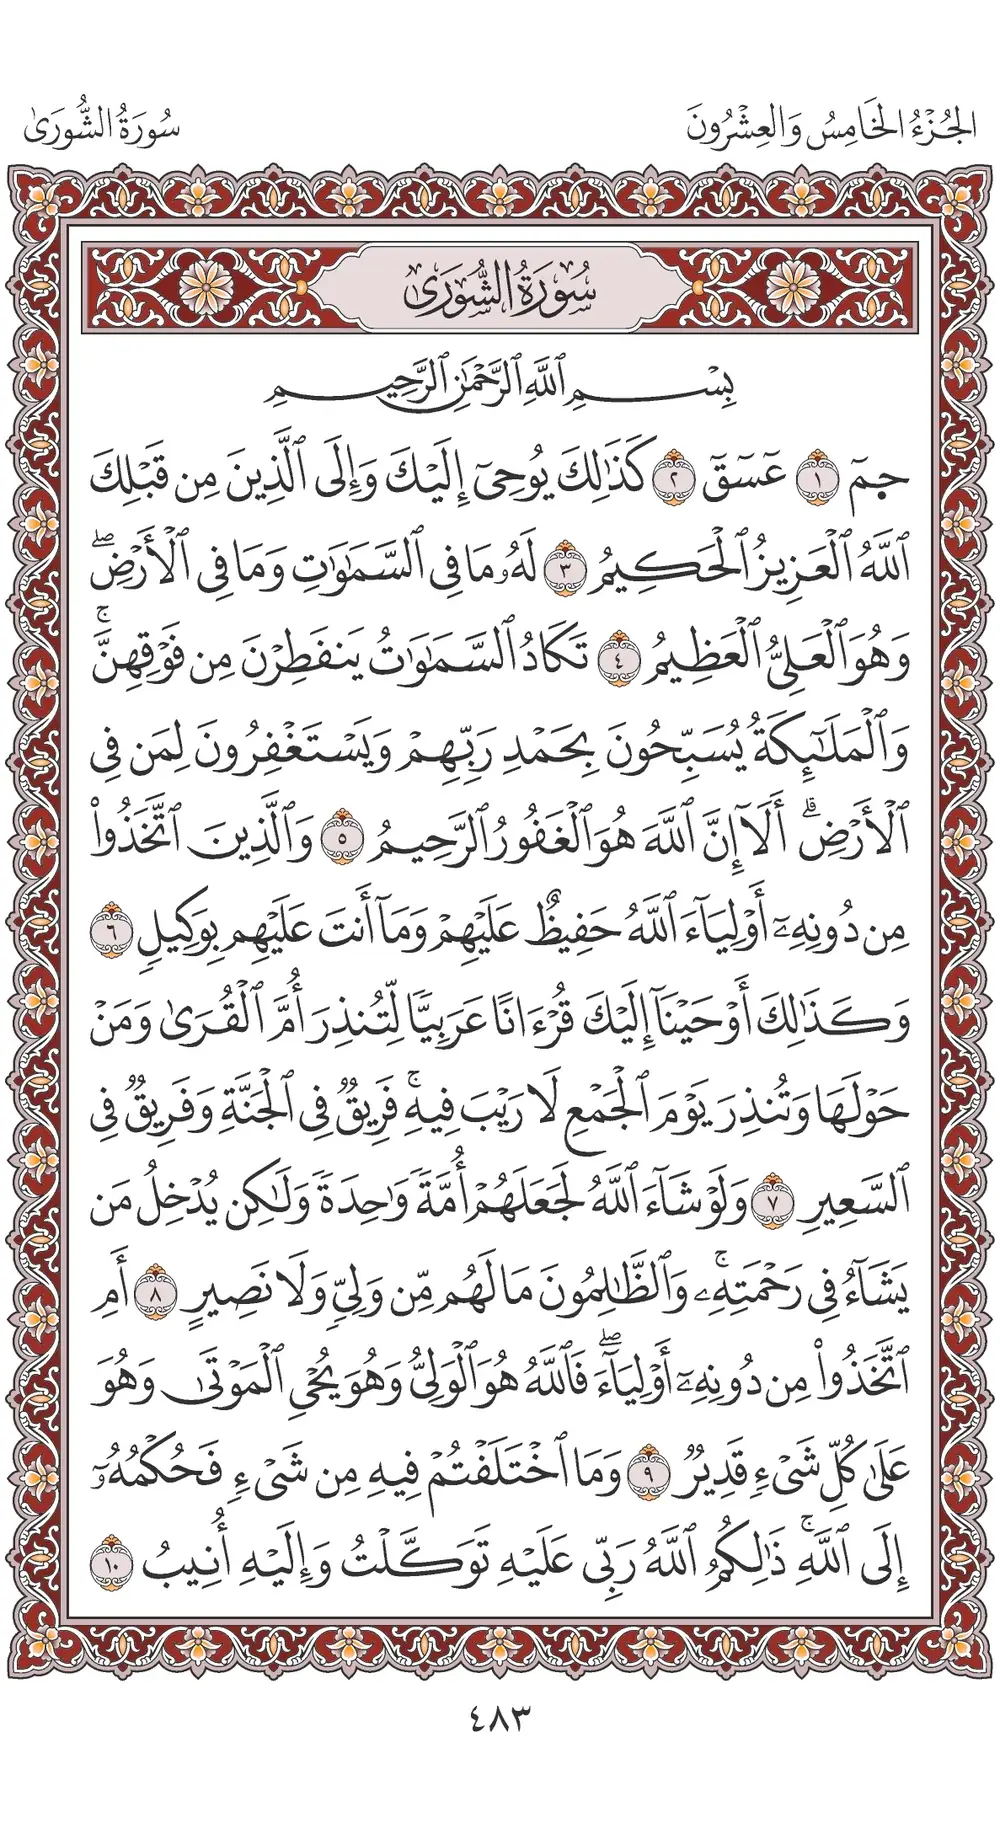 الجُزْءُ الخَامِسُ وَالعِشْرُونَ
سُورَةُ الشُّورَىٰ
سُورَةُ الشُّورَىٰ
بِسْمِ ٱللَّهِ ٱلرَّحْمَٰنِ ٱلرَّحِيمِ
حمٓ ١ عٓسٓقٓ ٢ كَذَٰلِكَ يُوحِىٓ إِلَيْكَ وَإِلَى ٱلَّذِينَ مِن قَبْلِكَ
ٱللَّهُ ٱلْعَزِيزُ ٱلْحَكِيمُ ٣ لَهُۥ مَا فِى ٱلسَّمَٰوَٰتِ وَمَا فِى ٱلْأَرْضِۖ
وَهُوَ ٱلْعَلِىُّ ٱلْعَظِيمُ ٤ تَكَادُ ٱلسَّمَٰوَٰتُ يَتَفَطَّرْنَ مِن فَوْقِهِنَّۚ
وَٱلْمَلَٰٓئِكَةُ يُسَبِّحُونَ بِحَمْدِ رَبِّهِمْ وَيَسْتَغْفِرُونَ لِمَن فِى
ٱلْأَرْضِۗ أَلَآ إِنَّ ٱللَّهَ هُوَ ٱلْغَفُورُ ٱلرَّحِيمُ ٥ وَٱلَّذِينَ ٱتَّخَذُوا۟
مِن دُونِهِۦٓ أَوْلِيَآءَ ٱللَّهُ حَفِيظٌ عَلَيْهِمْ وَمَآ أَنتَ عَلَيْهِم بِوَكِيلٍ ٦
وَكَذَٰلِكَ أَوْحَيْنَآ إِلَيْكَ قُرْءَانًا عَرَبِيًّا لِّتُنذِرَ أُمَّ ٱلْقُرَىٰ وَمَنْ
حَوْلَهَا وَتُنذِرَ يَوْمَ ٱلْجَمْعِ لَا رَيْبَ فِيهِۚ فَرِيقٌ فِى ٱلْجَنَّةِ وَفَرِيقٌ فِى
ٱلسَّعِيرِ ٧ وَلَوْ شَآءَ ٱللَّهُ لَجَعَلَهُمْ أُمَّةً وَٰحِدَةً وَلَٰكِن يُدْخِلُ مَن
يَشَآءُ فِى رَحْمَتِهِۦۚ وَٱلظَّٰلِمُونَ مَا لَهُم مِّن وَلِىٍّ وَلَا نَصِيرٍ ٨ أَمِ
ٱتَّخَذُوا۟ مِن دُونِهِۦٓ أَوْلِيَآءَۖ فَٱللَّهُ هُوَ ٱلْوَلِىُّ وَهُوَ يُحْىِ ٱلْمَوْتَىٰ وَهُوَ
عَلَىٰ كُلِّ شَىْءٍ قَدِيرٌ ٩ وَمَا ٱخْتَلَفْتُمْ فِيهِ مِن شَىْءٍ فَحُكْمُهُۥٓ
إِلَى ٱللَّهِۚ ذَٰلِكُمُ ٱللَّهُ رَبِّى عَلَيْهِ تَوَكَّلْتُ وَإِلَيْهِ أُنِيبُ ١٠
٤٨٣